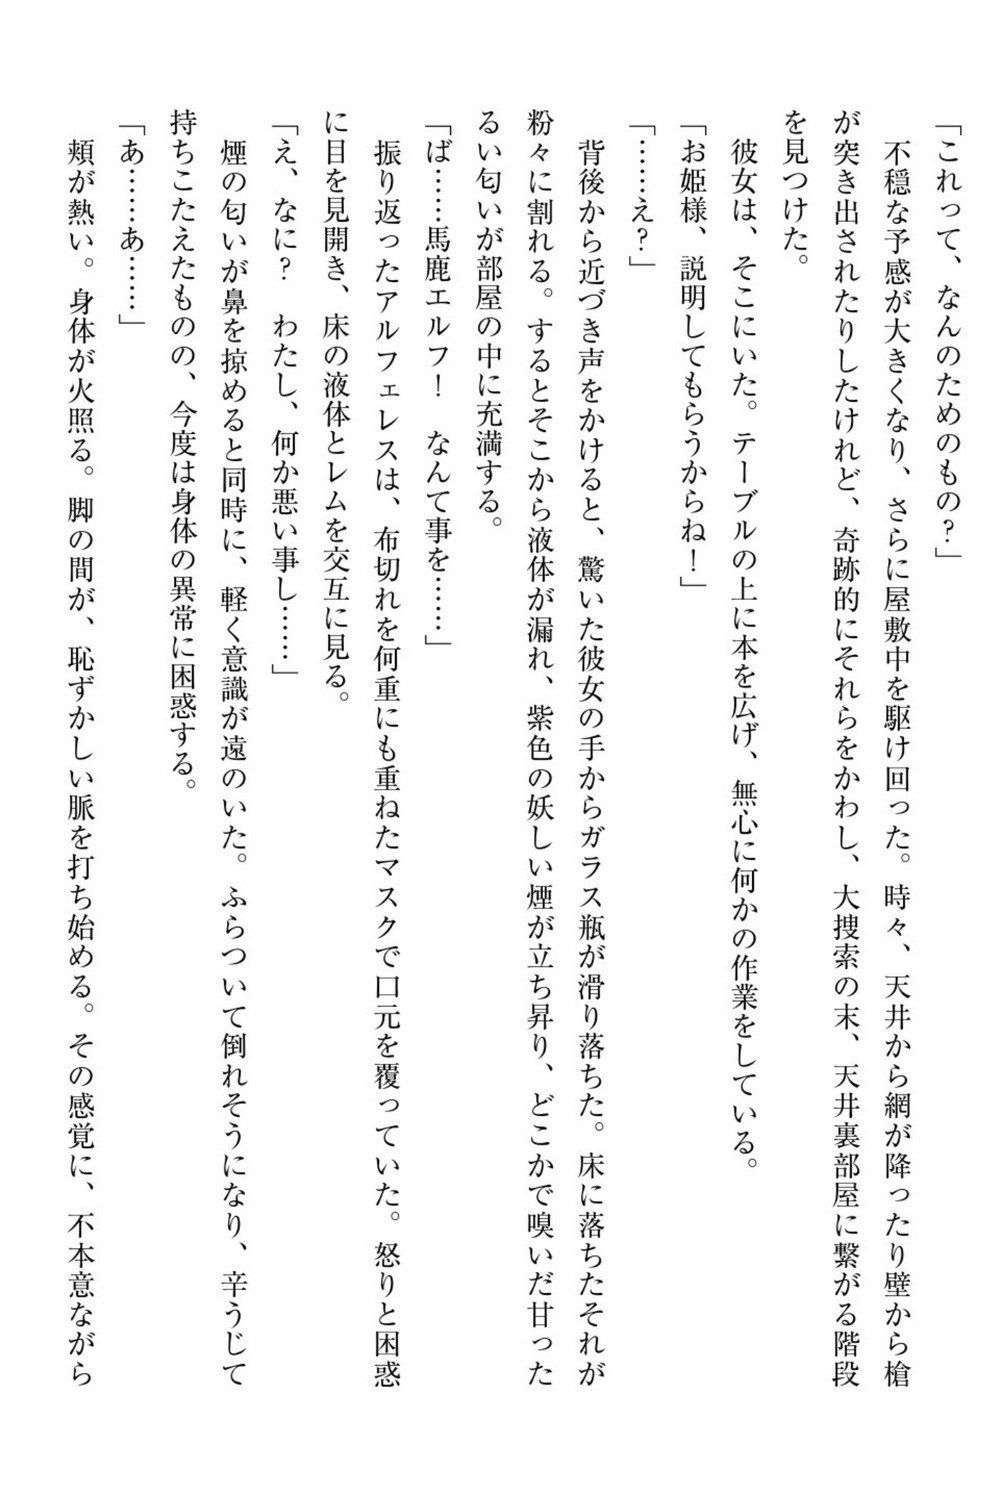 「これって、なんのためのもの？」
　不穏な予感が大きくなり、さらに屋敷中を駆け回った。時々、天井から網が降ったり壁から槍
が突き出されたりしたけれど、奇跡的にそれらをかわし、大捜索の末、天井裏部屋に繋がる階段
を見つけた。
　彼女は、そこにいた。テーブルの上に本を広げ、無心に何かの作業をしている。
「お姫様、説明してもらうからね！」
「……え？」
　背後から近づき声をかけると、驚いた彼女の手からガラス瓶が滑り落ちた。床に落ちたそれが
粉々に割れる。するとそこから液体が漏れ、紫色の妖しい煙が立ち昇り、どこかで嗅いだ甘った
るい匂いが部屋の中に充満する。
「ば……馬鹿エルフ！　なんて事を……」
　振り返ったアルフェレスは、布切れを何重にも重ねたマスクで口元を覆っていた。怒りと困惑
に目を見開き、床の液体とレムを交互に見る。
「え、なに？　わたし、何か悪い事し……」
　煙の匂いが鼻を掠めると同時に、軽く意識が遠のいた。ふらついて倒れそうになり、辛うじて
持ちこたえたものの、今度は身体の異常に困惑する。
「あ……あ……」
　頬が熱い。身体が火照る。脚の間が、恥ずかしい脈を打ち始める。その感覚に、不本意ながら